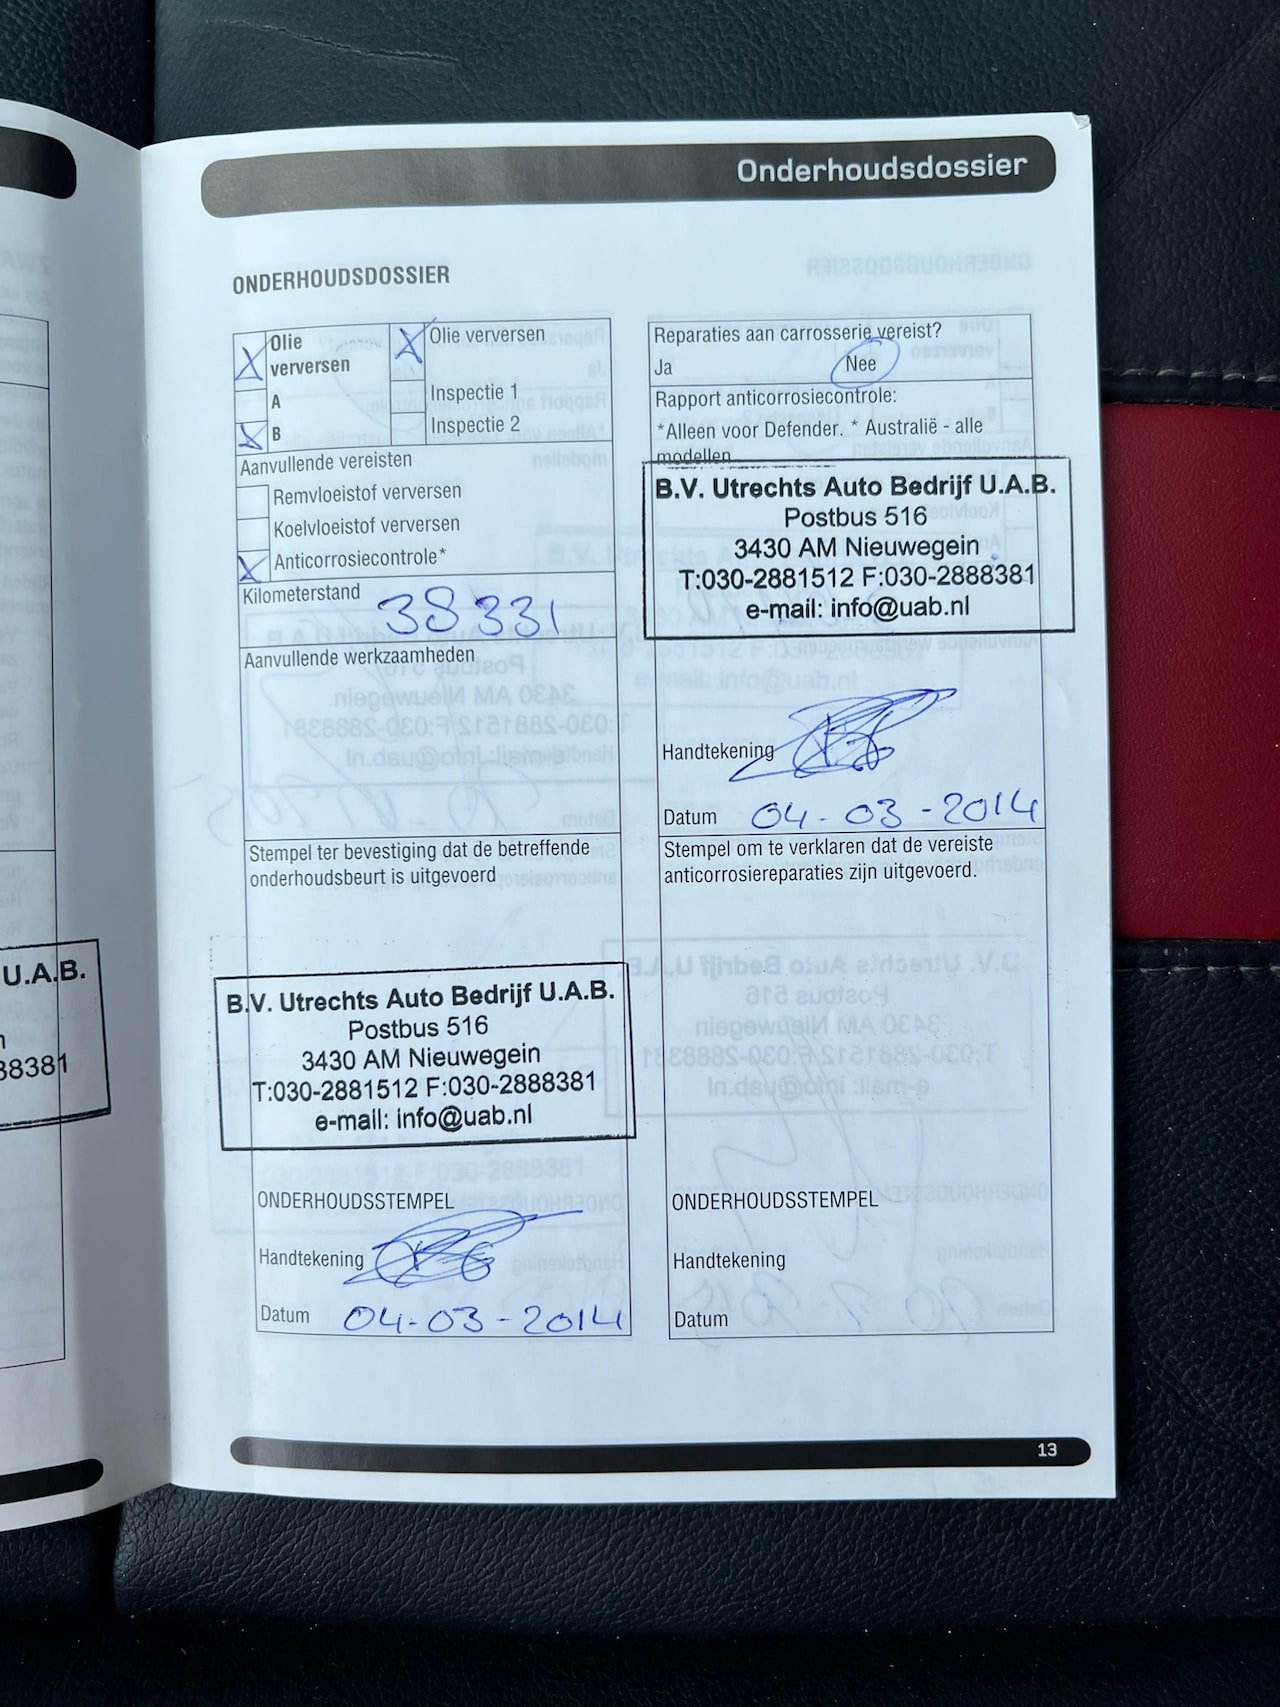 Onderhoudsdossier
ONDERHOUDSDOSSIER
Olie
verversen
Olie verversen
A
Inspectie 1
B
Inspectie 2
Aanvullende vereisten
Remvloeistof verversen
Koelvloeistof verversen
Anticorrosiecontrole*
Kilometerstand
38331
Aanvullende werkzaamheden
Stempel ter bevestiging dat de betreffende
onderhoudsbeurt is uitgevoerd
B.V. Utrechts Auto Bedrijf U.A.B.
Postbus 516
3430 AM Nieuwegein
T:030-2881512 F:030-2888381
e-mail: info@uab.nl
ONDERHOUDSSTEMPEL
Handtekening
Datum 04-03-2014
Reparaties aan carrosserie vereist?
Ja Nee
Rapport anticorrosiecontrole:
*Alleen voor Defender. * Australië - alle
modellen
B.V. Utrechts Auto Bedrijf U.A.B.
Postbus 516
3430 AM Nieuwegein
T:030-2881512 F:030-2888381
e-mail: info@uab.nl
Handtekening
Datum 04-03-2014
Stempel om te verklaren dat de vereiste
anticorrosiereparaties zijn uitgevoerd.
ONDERHOUDSSTEMPEL
Handtekening
Datum
13
U.A.B.
38381